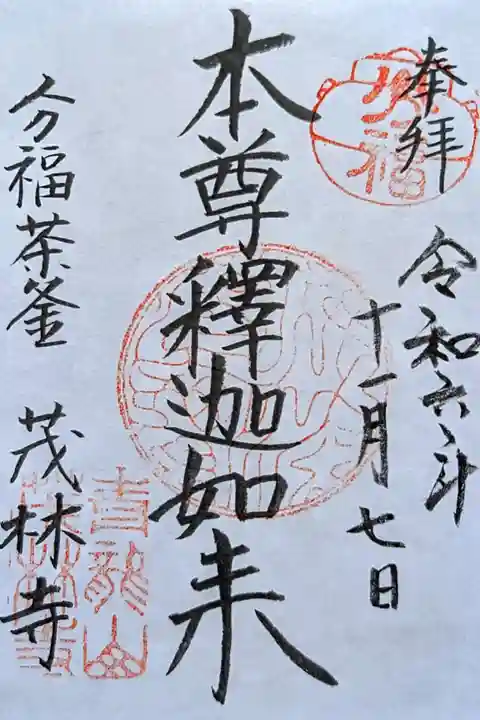 奉拝
令和六年
十一月七日
本尊釋迦如来
分福茶釜 茂林寺
分福
青龍山
茂林寺